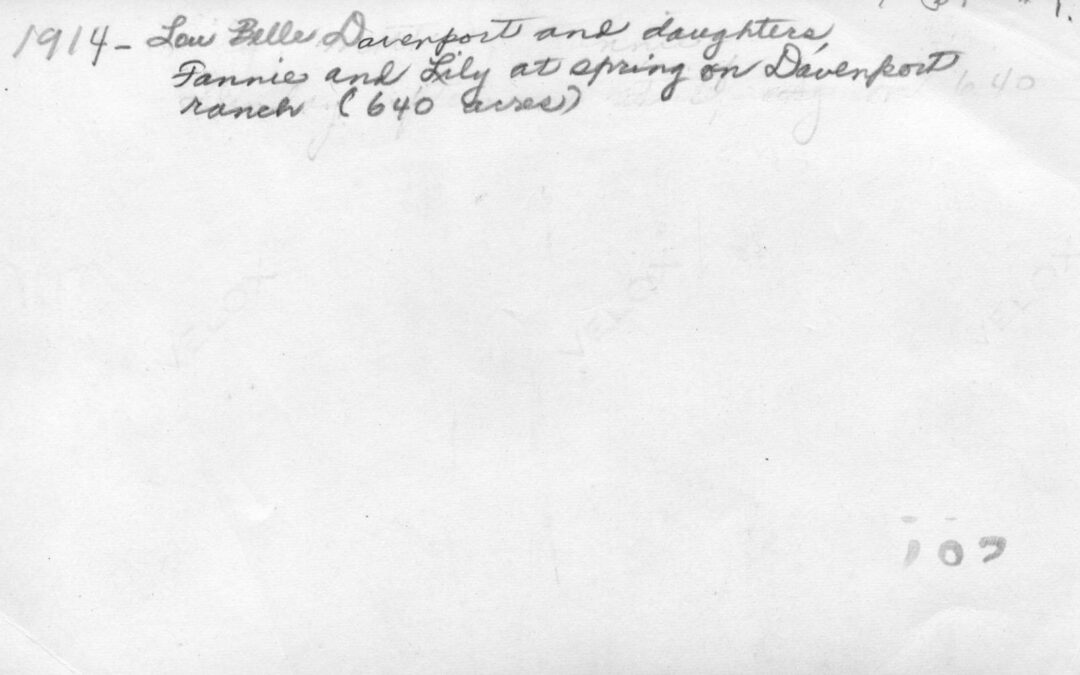 1914 - Lou Belle Davenport and daughters,
Fannie and Lily at spring on Davenport
ranch (640 acres)